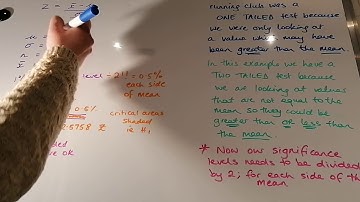 Z = x̄ -
μ =
σ =
n =
x̄
level - 2!! = 0.5%
each side
of mean
0.5%
critical areas
2.5758 Z
shaded
ie H₁
ok
running club was a
ONE TAILED test because
we were only looking at
a value which may have
been greater than the mean.
In this example we have a
TWO TAILED test because
we are looking at values
that are not equal to the
mean so they could be
greater than or less than
the mean.
* Now our significance
levels needs to be divided
by 2; for each side of the
mean